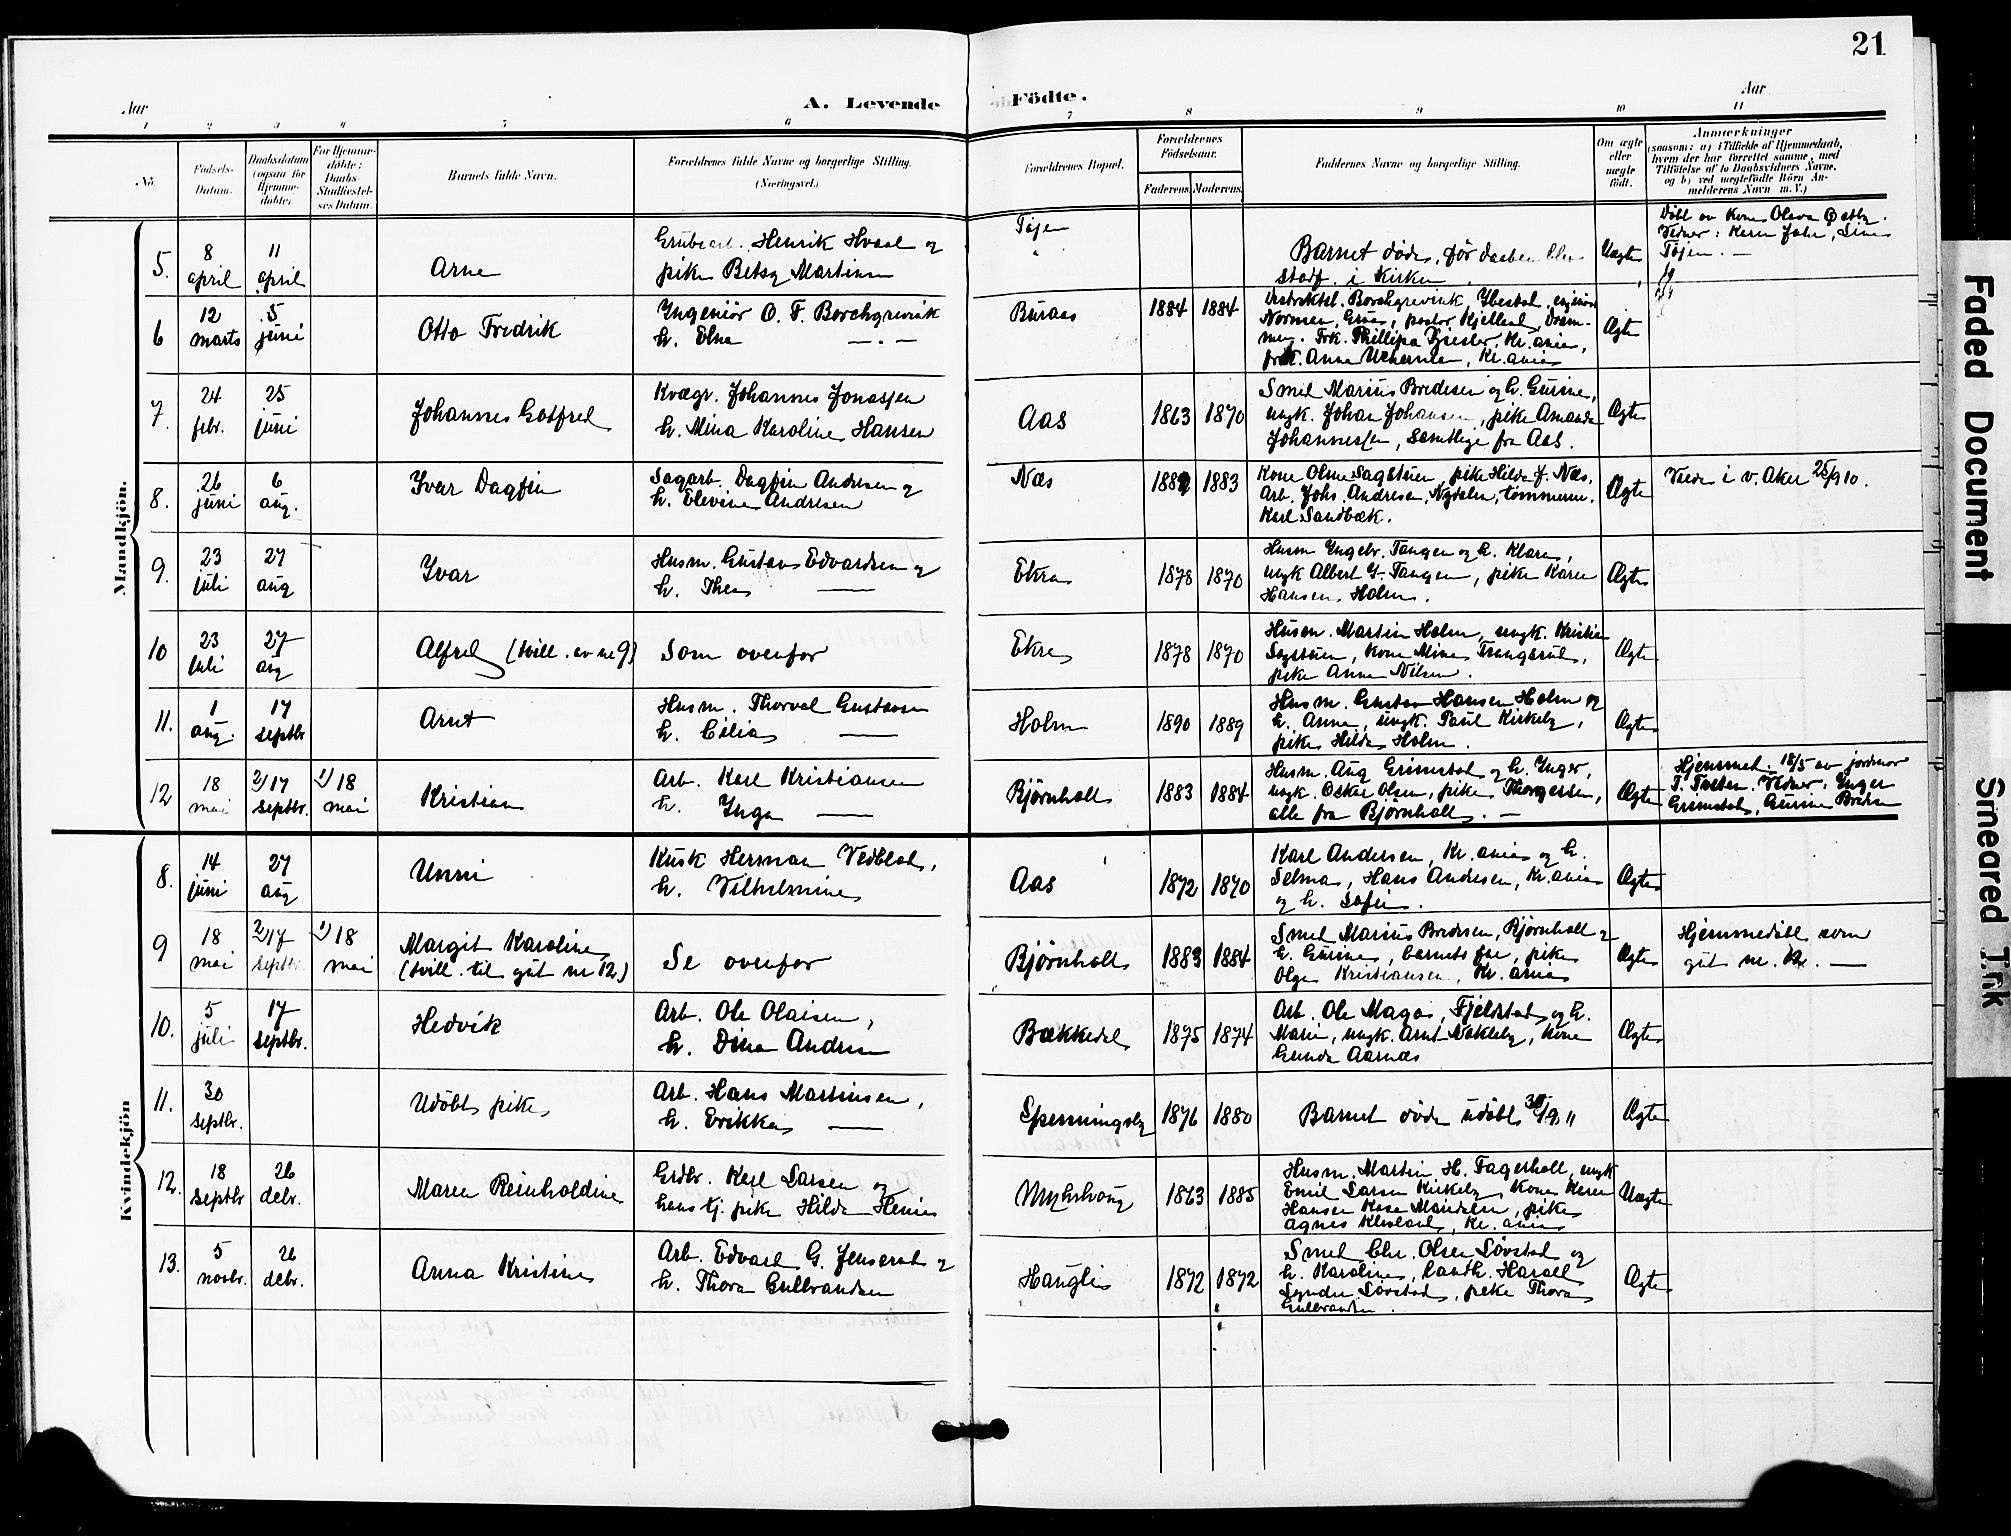 21
Aar
A. Levende
Födte.
Aar
1 2 3 4 5 6 7 8 9 10 11
No.
Födsels-
Datum.
Daabsdatum
(ogsaa for
Hjemme-
döbte).
For Hjemme-
döbte:
Daabs-
Stadfæstel-
ses Datum.
Barnets fulde Navn.
Forældrenes fulde Navne og borgerlige Stilling.
(Næringsvei.)
Forældrenes Bopæl.
Forældrenes
Födselsaar.
Faderens. Moderens.
Faddernes Navne og borgerlige Stilling.
Om ægte
eller
uægte
födt.
Anmærkninger
(saasom: a) i Tilfælde af Hjemmedaab,
hvem der har forrettet samme, med
Tilföielse af to Daabsvidners Navne,
og b) ved uægtefödte Börn An-
melderens Navn m. V.)
Mandkjön.
5. 8 april 11 april Arne
Grubearb. Henrik Hvaal og
pike Betsy Martinsen
Tøjen
Barnet døde, før daaben blev
stadf. i Kirken
Uægte
Døbt av Kone Olava
Vidner: Karen
Tøjen. —
6 12 marts 5 juni Otto Fredrik
Ingeniør O. F. Borchgrevink
h. Elna — . —
Buraas 1884 1884
Distriktsl. Borchgrevink, Ibestad, enginør
Normann, pastor Kjelland, Dram-
men. Frk. Phillipa Kr.ania,
frk. Anna Kr.ania
Ægte
7. 24 febr. 25 juni Johannes Gotfred
Kvægr. Johannes Jonassen
h. Mina Karoline Hansen
Aas 1863 1870
Smed Marius Bredesen og h. Gurine,
ungk. Johan Johansen, pike Amanda
Johannessen, samtlige fra Aas.
Ægte
8. 26 juni 6 aug. Ivar Dagfin
Sagarb. Dagfin Andresen og
h. Elevine Andresen
Næs 1883
Kone Oline Sagstuen, pike Hilda J. Næs,
Arb. Johs. Andresen, Nydalen, tømmerm.
Karl Sandbæk.
Ægte
Viede i v. Aker 25/9 10.
9. 23 juli 27 aug Ivar
Husm. Gustav Edvardsen og
h. Thea —
Ekra 1878 1870
Husm Ingebr. Tangen og h. Klara,
ungk Albert G. Tangen, pike Karen
Hansen Holm.
Ægte
10 23 juli 27 aug Alfred (tvill. av nr 9)
Som ovenfor
Ekra 1878 1870
Husm. Martin Holm, ungk. Kristian
Sagstuen, kone Mina Trangsrud,
pike Anna Nilsen.
Ægte
11. 1 aug. 17 septbr Arnt
Husm. Thorval Gustavsen
h. Cilia —
Holm 1890 1889
Husm. Gustav Hansen Holm og
h. Anna, ungk. Paul Kirkeby,
pike Hilda Holm.
Ægte
12 18 mai 2/17 septbr. 1/18 mai Kristian
Arb. Karl Kristiansen
h. Inga —
Bjørnholt 1883 1884
Husm. Aug Grimstad og h. Inger,
ungk. Oskar Olsen, pike Thorgersen,
alle fra Bjørnholt. —
Ægte
Hjemmed. 18/5 av jordmor
Vidner: Inger
Grimstad, Gurine Bredesen
Kvindekjön
8. 14 juni 27 aug Unni
Kusk Herman Vedblad,
h. Vilhelmine
Aas 1872 1870
Karl Andersen, Kr.ania og h.
Selma, Hans Andersen, Kr.ania
og h. Sofie.
Ægte
9 18 mai 2/17 septbr. 1/18 mai Margit Karoline
(tvill. til gut nr 12)
Se ovenfor
Bjørnholt 1883 1884
Smed Marius Bredesen, Bjørnholt og
h. Gurine, barnets far, pike
Olga Kristiansen, Kr.ania
Ægte
Hjemmedøbt som
gut nr. 12. —
10. 5 juli 17 septbr. Hedvik
Arb. Ole Olaisen,
h. Dina Andersen
Bækkedal 1875 1874
Arb. Ole Fjeldstad og h.
Marie, ungk. Arnt Nøkleby, kone
Gunda Aarnæs
Ægte
11. 30 septbr. Udøbt pike
Arb. Hans Martinsen,
h. Erikka —
Spenningsby 1876 1880
Barnet døde udøbt 30/9 11
Ægte
12. 18 septbr 26 debr. Maren Reinholdine
Grdbr. Karl Larsen og
hans tj. pike Hilda
1863 1885
Husm. Martin H. Fagerholt, ungk
Emil Larsen Kirkeby, Kone Karen
Hansen pike
Agnes Kr.ania
Uægte
13. 5 novbr. 26 debr. Anna Kristine
Arb. Edvard G. Jensrud og
h. Thora Gulbrandsen
Hauglie 1872 1872
Smed Chr. Olsen Løvstad og
h. Karoline, landh. Harald
Løvstad, pike Thora
Gulbrandsen.
Ægte
Faded Document
Smeared Trk